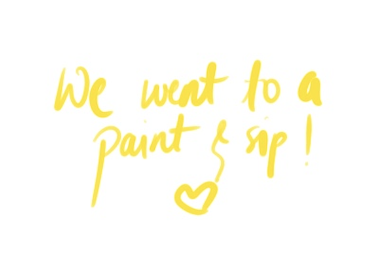 We went to a
paint & sip!